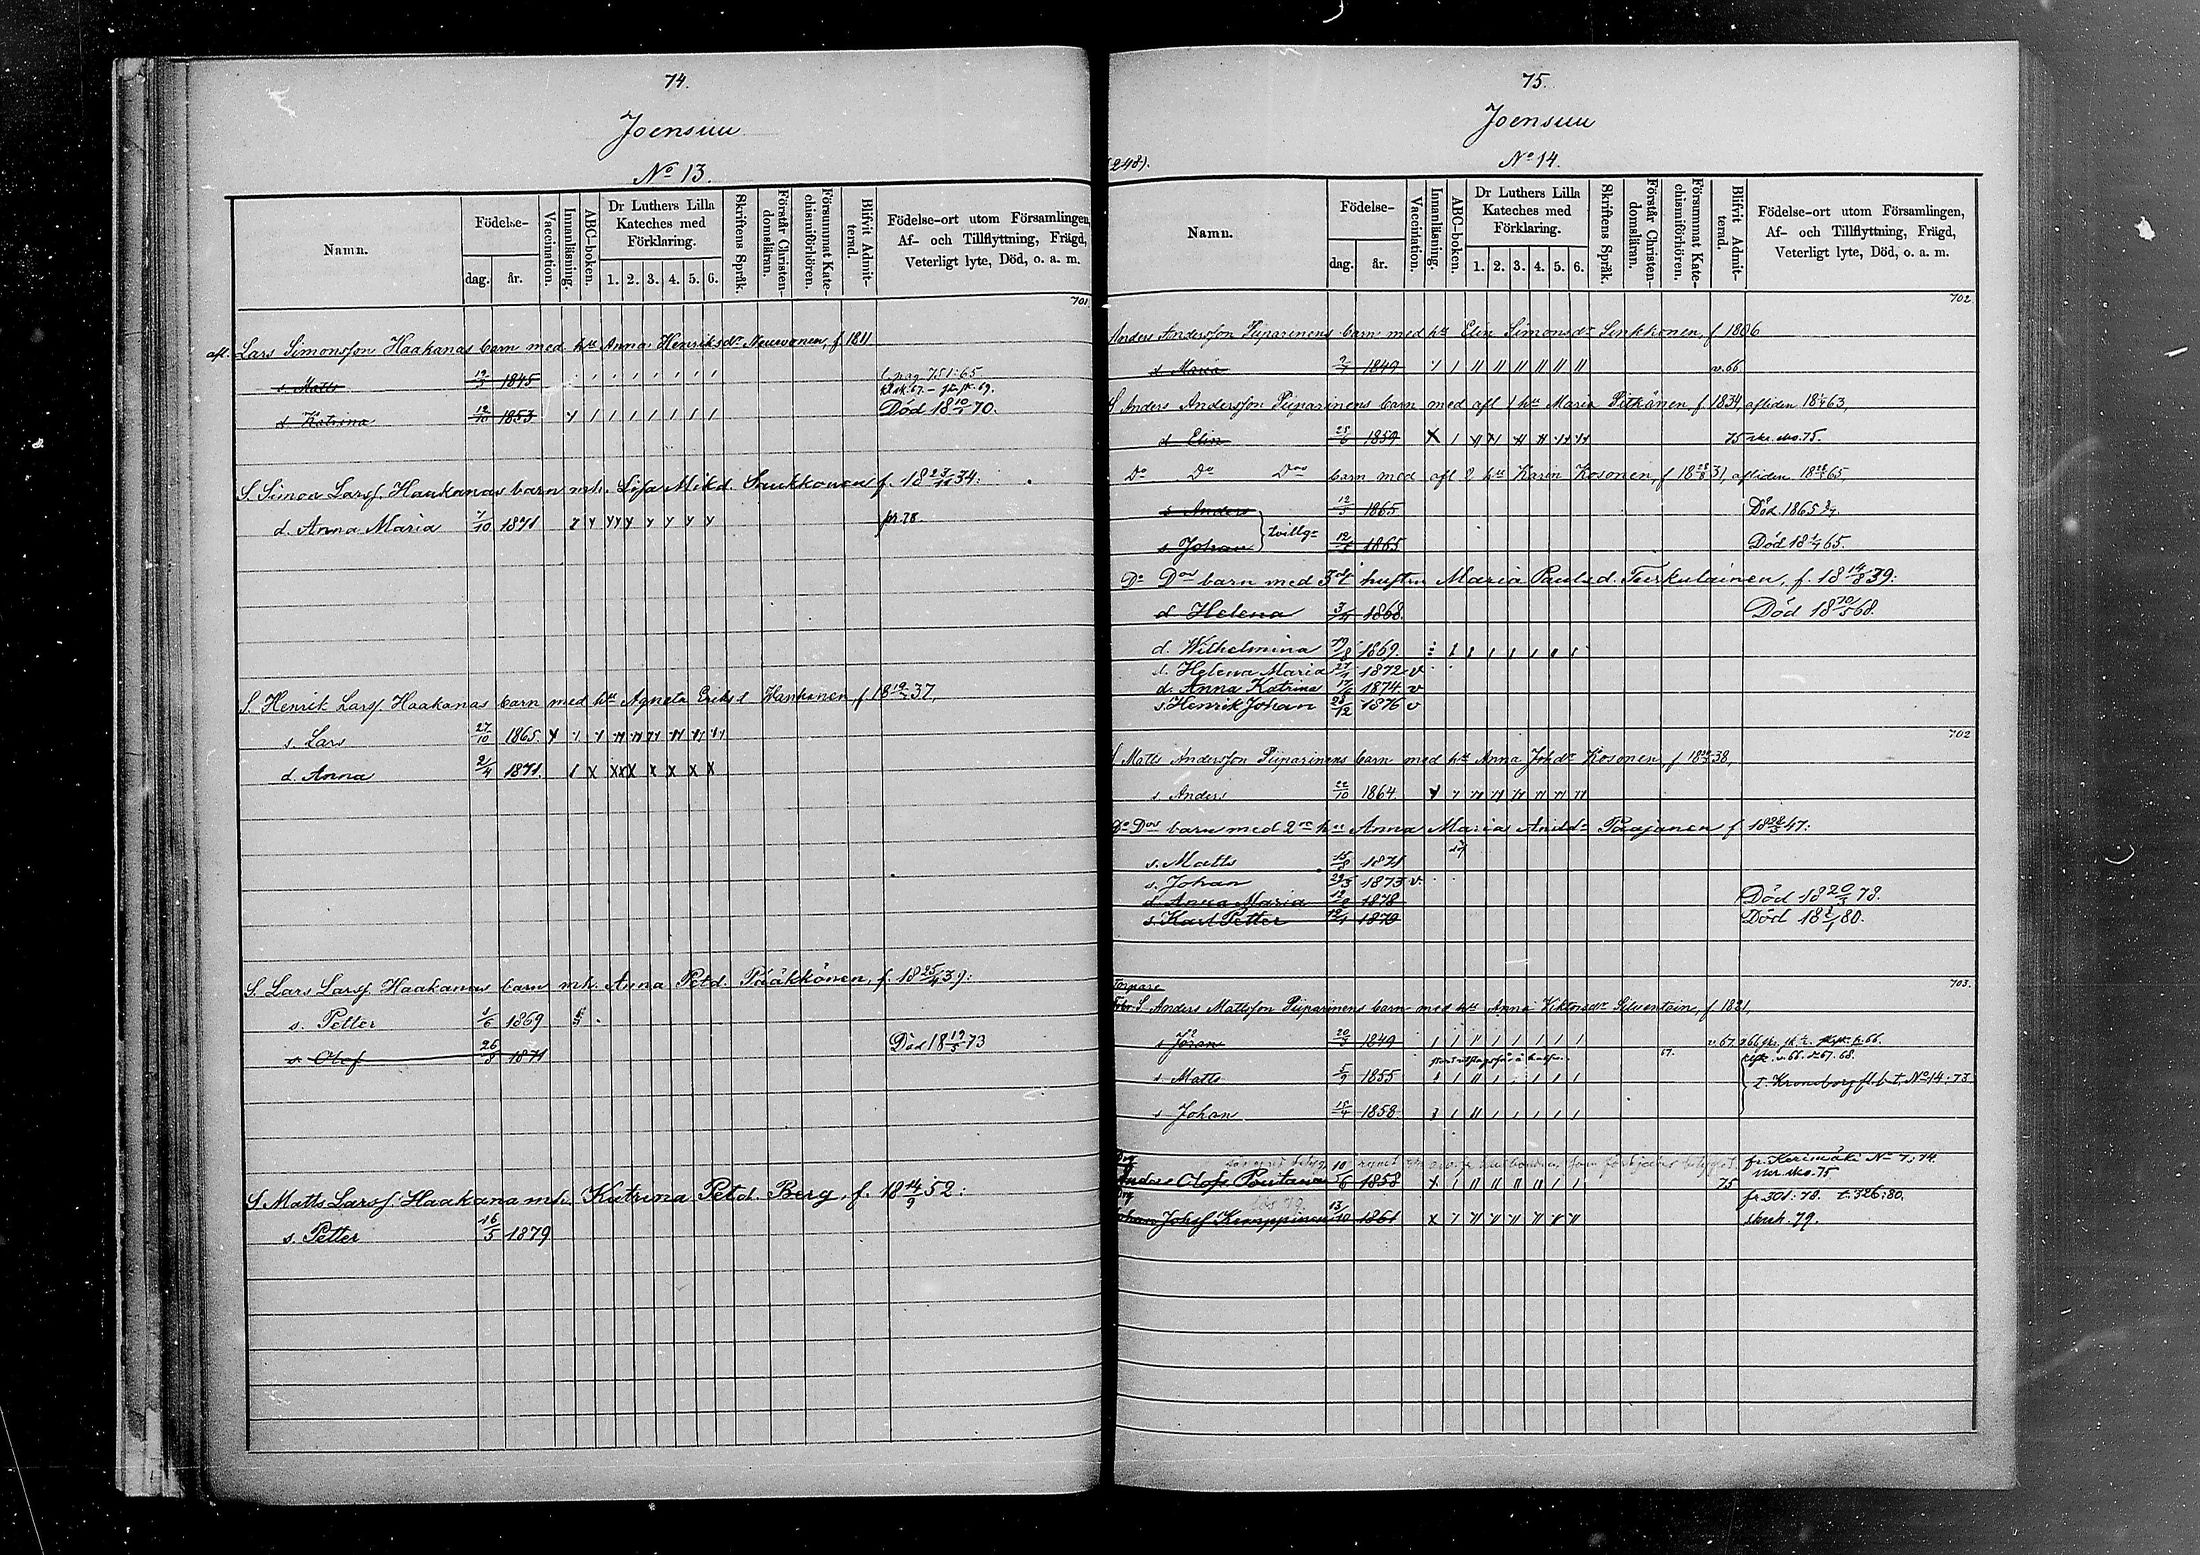 74.
Joensuu
No 13.
Namn.
Födelse-
dag.
år.
Vaccination.
Innanläsning.
ABC-boken.
Dr Luthers Lilla Kateches med Förklaring.
1. 2. 3. 4. 5. 6.
Skriftens Språk.
Förstår Christendomsläran.
Försummat Katechismiförhören.
Blifvit Admitterad.
Födelse-ort utom Församlingen,
Af- och Tillflyttning, Frägd,
Veterligt lyte, Död, o. a. m.
701.
afl. Lars Simonsson Haakanas barn med hu Anna Henriksdr f 1811
s. Matts 19/3 1845
d. Katrina 1853 Död 18 10/1 70.
S. Simon Larsf. Haakanas barn mh. Lisa Mikd. f. 18 34:
d. Anna Maria 7/10 1871 pr. 78.
S. Henrik Larsf. Haakanas barn med hu Agneta Eriksd. f 18 37,
s. Lars 27/10 1865
d. Anna 2/4 1871
S. Lars Larsf. Haakanas barn mh. Anna Petd. Pääkkönen, f. 18 25/4 39:
s. Petter 1/6 1869
s. Olof 26/8 1871 Död 18 19/5 73
S. Matts Larsf. Haakana mh. Katrina Petd. Berg, f. 18 14/9 52:
s. Petter 16/5 1879
75.
Joensuu
248).
No 14.
Namn.
Födelse-
dag.
år.
Vaccination.
Innanläsning.
ABC-boken.
Dr Luthers Lilla Kateches med Förklaring.
1. 2. 3. 4. 5. 6.
Skriftens Språk.
Förstår Christendomsläran.
Försummat Katechismiförhören.
Blifvit Admitterad.
Födelse-ort utom Församlingen,
Af- och Tillflyttning, Frägd,
Veterligt lyte, Död, o. a. m.
702
Anders Andersson Piiparinens barn med hu Elin Simonsdr Sinkkonen, f 1806
d. Maria 1849 v. 66
Anders Andersson Piiparinens barn med afl 1 hu Maria Pitkänen, f 1834, afliden 18 63,
d. Elin 25/6 1859 75
Do Do Dos barn med afl 2 hu Karin Kosonen, f 18 31, afliden 18 65,
s. Anders 12/3 1865 Död 1865
s. Johan 1865 Död 18 1/4 65.
Do Dos barn med 3dt hustrun Maria Paulsd. f. 18 14/8 39:
d. Helena 3/4 1868. Död 18 10/5 68.
d. Wilhelmina 1869.
d. Helena Maria 27/1 1872 v
d. Anna Katrina 1874 v
s. Henrik Johan 28/12 1876 v
702
Matts Andersson Piiparinens barn med hu Anna Johdr Kosonen, f 18 38,
s Anders 22/10 1864
Do Dos barn med 2ra hu Anna Maria Paajanen f 18 28/3 47:
s. Matts 15/8 1871
s. Johan 1873 v.
d. Anna Maria 1878 Död 18 20/3 78.
s. Karl Petter 1879 Död 18 80.
703.
Torpare
S Anders Mattsson Piiparinens barn med hu Anna f 1821,
s Jöran 1849 v. 67
s. Matts 5/9 1855
t. Kronoborg No 14: 73
s Johan 15/4 1858
Drg
Anders Olofs. 10/6 1858 75 fr. Kerimäki No 7: 74.
Drg
Johan Johsf Kemppinen 13/10 1861 fr 301: 78. t. 326: 80.